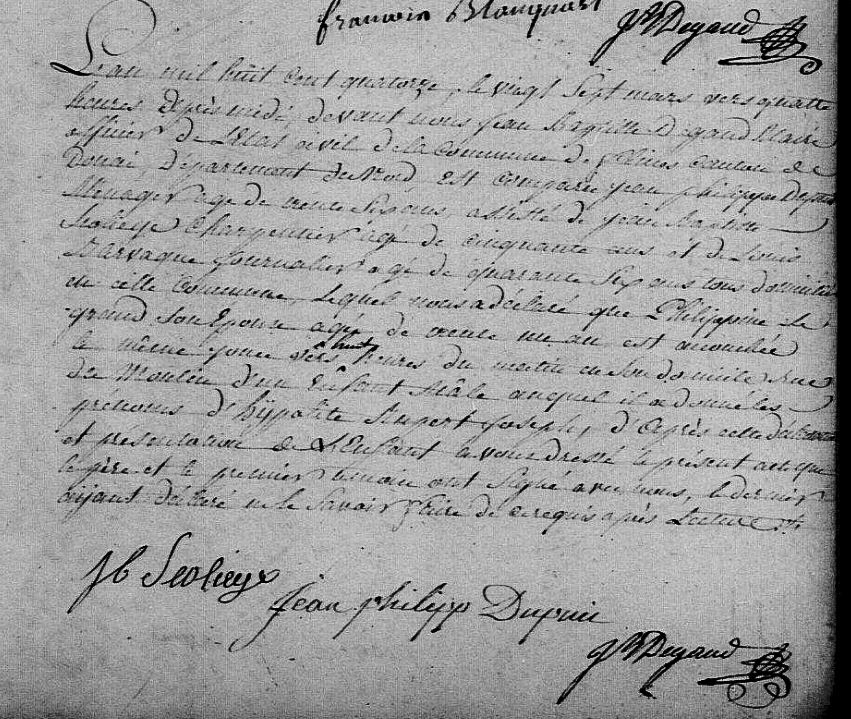 françois Blanquart
JB Degand
L'an mil huit cent quatorze, le vingt Sept mars vers quattre
heures après midi, devant nous Jean Baptiste Degand Maire
officier de L'Etat civil de la Commune de flines Canton de
Douai, Département du Nord, est comparu Jean philippe Dupuis
Menager agé de trente Six ans, assisté de Jean Baptiste
Scolieyx Charpentier agé de cinquante ans et de Louis
journalier agé de quarante Six ans tous domiciliés
en cette Commune, Lequel nous a déclaré que Philippine Le
grand Son Epouse agée de trente un an est accouchée
le même jour vers huit heures du matin en Son domicile rue
du Moulin d'un Enfant Mâle auquel il a donné les
prénoms d'hÿpolite Rupert Joseph, d'après cette déclaration
et présentation de L'Enfant avons dressé le présent acte que
le père et le premier témoin ont Signé avec nous, le dernier
aÿant déclaré ne le Savoir faire de ce requis après Lecture
Jb Scolieyx
Jean philipp Dupuis
JB Degand